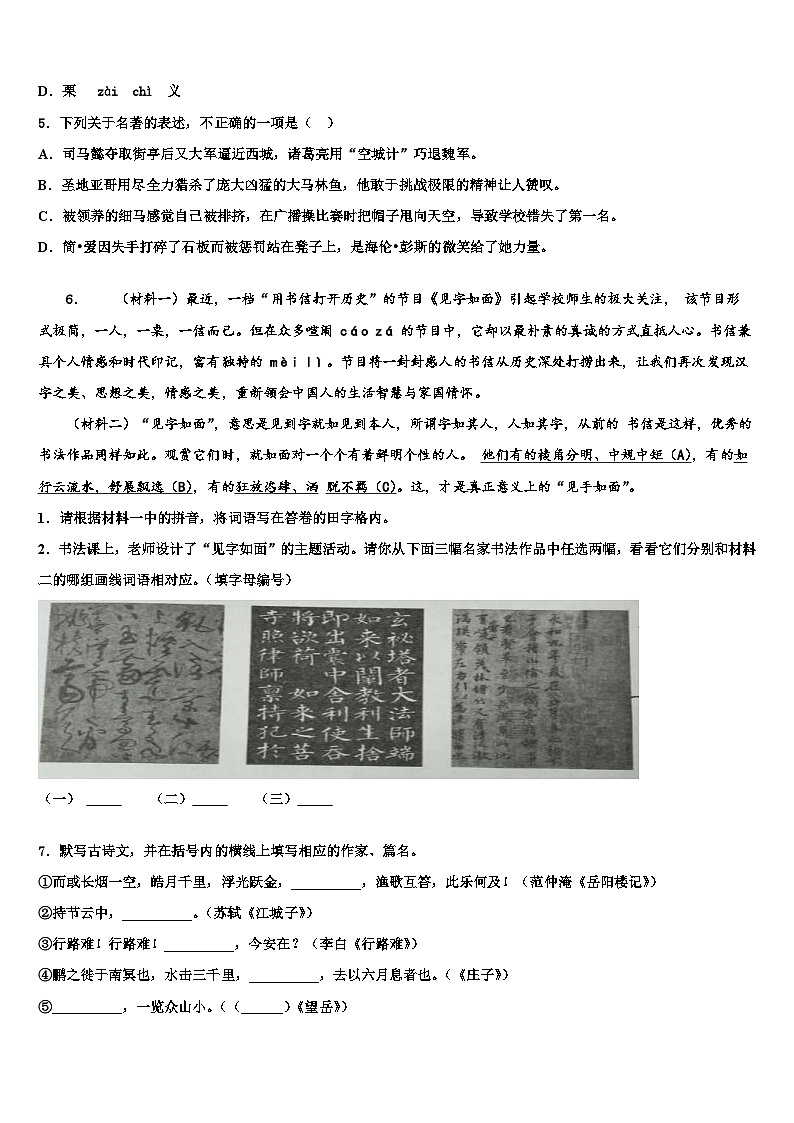 D．栗 zài chì 义
5．下列关于名著的表述，不正确的一项是（ ）
A．司马懿夺取街亭后又大军逼近西城，诸葛亮用“空城计”巧退魏军。
B．圣地亚哥用尽全力猎杀了庞大凶猛的大马林鱼，他敢于挑战极限的精神让人赞叹。
C．被领养的细马感觉自己被排挤，在广播操比赛时把帽子甩向天空，导致学校错失了第一名。
D．简•爱因失手打碎了石板而被惩罚站在凳子上，是海伦•彭斯的微笑给了她力量。
6． （材料一）最近，一档“用书信打开历史”的节目《见字如面》引起学校师生的极大关注， 该节目形
式极简，一人，一桌，一信而已。但在众多喧闹 cáo zá 的节目中，它却以最朴素的真诚的方式直抵人心。书信兼
具个人情感和时代印记，富有独特的 mèi lì 。节目将一封封感人的书信从历史深处打捞出来，让我们再次发现汉
字之美、思想之美，情感之美，重新领会中国人的生活智慧与家国情怀。
（材料二）“见字如面”，意思是见到字就如见到本人，所谓字如其人，人如其字，从前的 书信是这样，优秀的
书法作品同样如此。观赏它们时，就如面对一个个有着鲜明个性的人。 他们有的棱角分明、中规中矩（A），有的如
行云流水，舒展飘逸（B），有的狂放恣肆、洒 脱不羁（C）。这，才是真正意义上的“见手如面”。
1．请根据材料一中的拼音，将词语写在答卷的田字格内。
2．书法课上，老师设计了“见字如面”的主题活动。请你从下面三幅名家书法作品中任选两幅，看看它们分别和材料
二的哪组画线词语相对应。（填字母编号）
玄秘塔者大法師端
如来以闡教利生捨
即出囊中舍利使吞
將欲荷 如来之菩
寺照律師禀持犯於
（一） _____ （二）_____ （三）_____
7．默写古诗文，并在括号内的横线上填写相应的作家、篇名。
①而或长烟一空，皓月千里，浮光跃金，__________，渔歌互答，此乐何及！（范仲淹《岳阳楼记》）
②持节云中，__________。（苏轼《江城子》）
③行路难！行路难！__________，今安在？（李白《行路难》）
④鹏之徙于南冥也，水击三千里，__________，去以六月息者也。（《庄子》）
⑤__________，一览众山小。（（______）《望岳》）